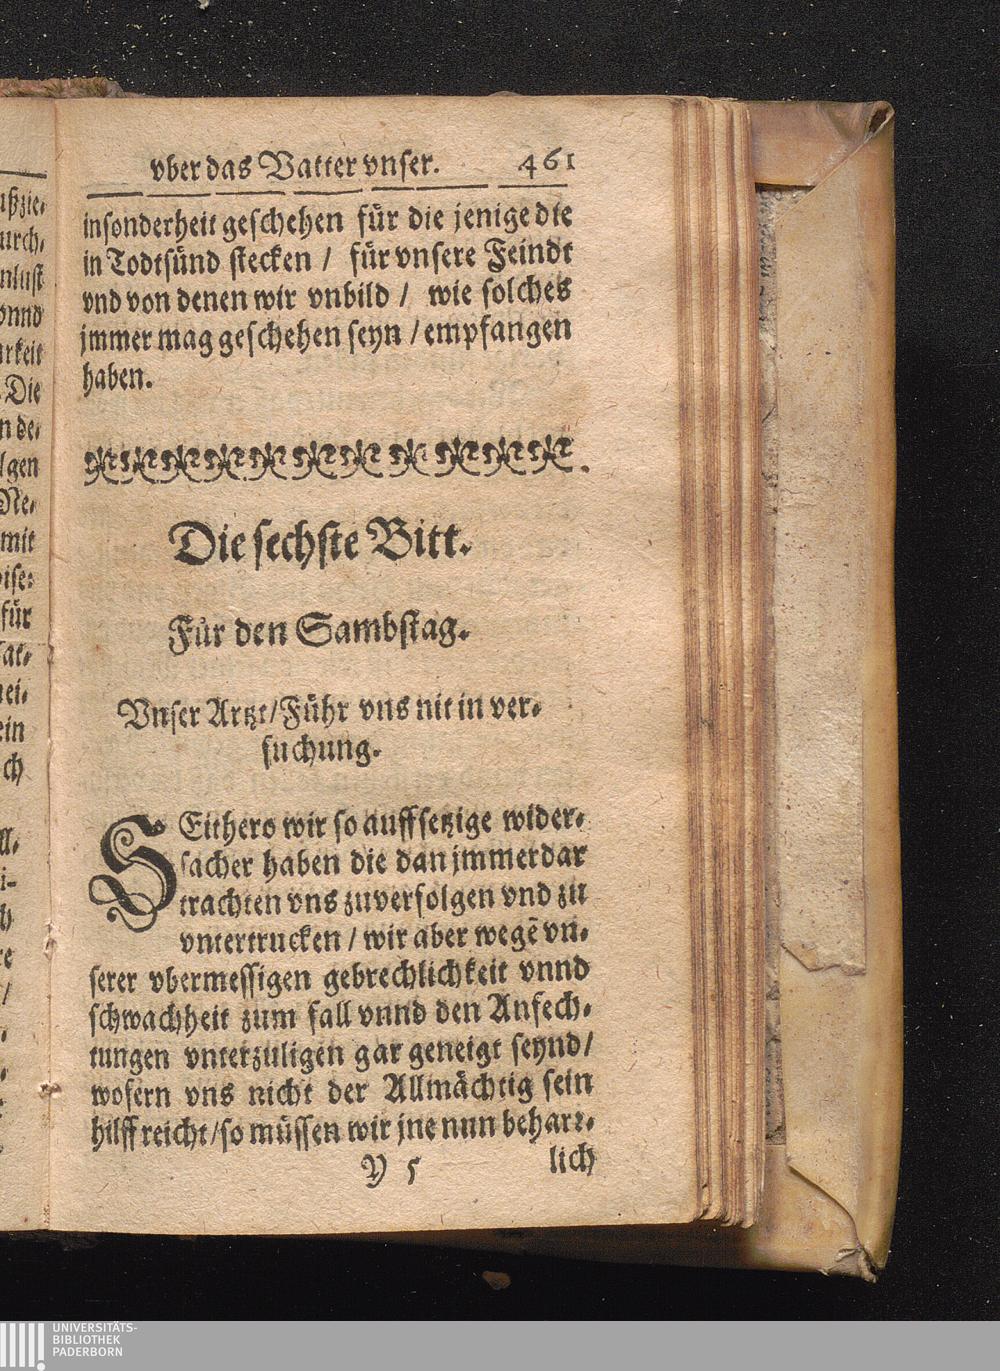 ußzie⸗
urch⸗
nlust
vnnd
arkeit
Die
n de⸗
lgen
Ne⸗
mit
für
ein
ch
vber das Vatter vnser. 461
insonderheit geschehen für die jenige die
in Todtsünd stecken / für vnsere Feindt
vnd von denen wir vnbild / wie solches
jmmer mag geschehen seyn / empfangen
haben.
Die sechste Bitt.
Für den Sambstag.
Vnser Artzt / Führ vns nit in ver⸗
suchung.
SEithero wir so auffsetzige wider⸗
sacher haben die dan jmmerdar
trachten vns zuverfolgen vnd zu
vntertrucken / wir aber wegẽ vn⸗
serer vbermessigen gebrechlichkeit vnnd
schwachheit zum fall vnnd den Anfech⸗
tungen vnterzuligen gar geneigt seynd /
wofern vns nicht der Allmächtig sein
hilff reicht / so müssen wir jne nun beharr⸗
Y 5 lich
UNIVERSITÄTS-
BIBLIOTHEK
PADERBORN